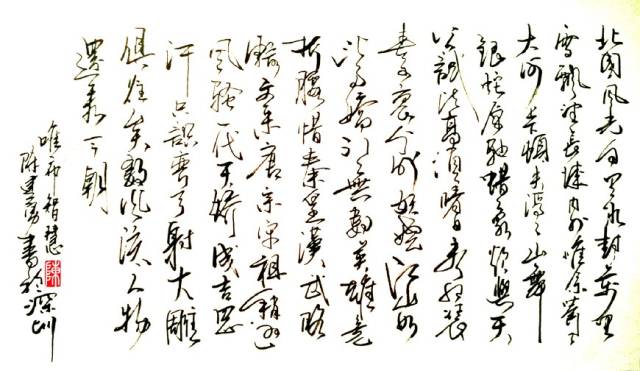 北国风光千里冰封万里
雪飘望长城内外惟余莽莽
大河上下顿失滔滔山舞
银蛇原驰蜡象欲与天
公试比高须晴日看红装
素裹分外妖娆江山如
此多娇引無数英雄竞
折腰惜秦皇漢武略
输文采唐宗宋祖稍逊
风骚一代天骄成吉思
汗只識弯弓射大雕
俱往矣数风流人物
還看今朝
唯智慧
陈建書於深圳
陳